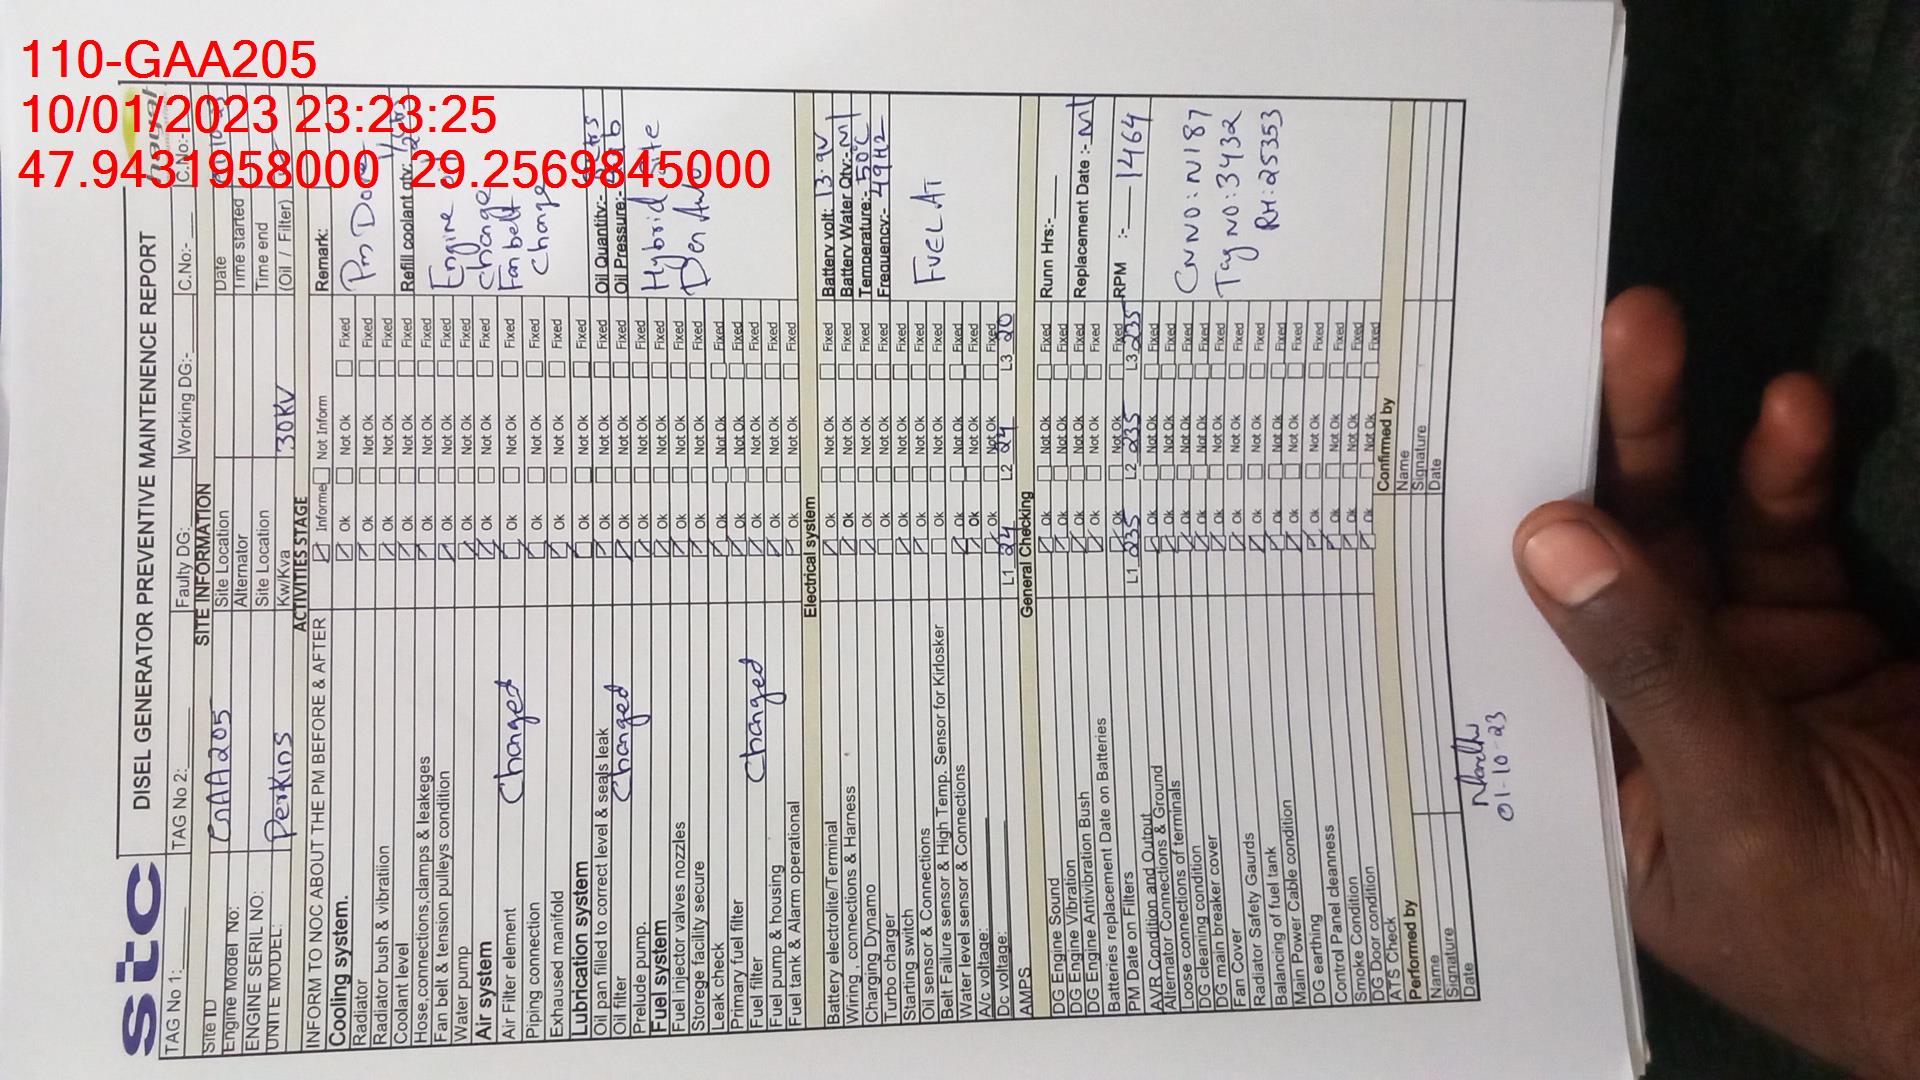 110-GAA205
10/01/2023 23:23:25
47.9431958000 29.2569845000
stc
DISEL GENERATOR PREVENTIVE MAINTENENCE REPORT
TAG No 1:
TAG No 2:
Faulty DG:
Working DG:-
C.No:-
C.No:-
SITE INFORMATION
Site ID GAA205
Site Location
Date
Engine Model No:
Alternator
Time started
ENGINE SERIL NO:
Site Location
Time end
UNITE MODEL: Perkins
Kw/Kva 30KV
(Oil / Filter)
ACTIVITIES STAGE
INFORM TO NOC ABOUT THE PM BEFORE & AFTER
Informe Not Inform
Remark:
Cooling system.
Ok Not Ok Fixed
Pm Done
Radiator
Ok Not Ok Fixed
Radiator bush & vibratiion
Ok Not Ok Fixed
Coolant level
Ok Not Ok Fixed
Refill coolant qty:
Hose,connections,clamps & leakeges
Ok Not Ok Fixed
Fan belt & tension pulleys condition
Ok Not Ok Fixed
Engine oil
Water pump
Ok Not Ok Fixed
Change
Air system
Ok Not Ok Fixed
Fan belt
Air Filter element Changed
Ok Not Ok Fixed
Change
Piping connection
Ok Not Ok Fixed
Exhaused manifold
Ok Not Ok Fixed
Lubrication system
Ok Not Ok Fixed
Oil pan filled to correct level & seals leak
Ok Not Ok Fixed
Oil Quantity:-
Oil filter Changed
Ok Not Ok Fixed
Oil Pressure:-
Prelude pump.
Ok Not Ok Fixed
Hybrid Site
Fuel system
Ok Not Ok Fixed
Fuel injector valves nozzles
Ok Not Ok Fixed
Storege facility secure
Ok Not Ok Fixed
Leak check
Ok Not Ok Fixed
Primary fuel filter
Ok Not Ok Fixed
Fuel filter Changed
Ok Not Ok Fixed
Fuel pump & housing
Ok Not Ok Fixed
Fuel tank & Alarm operational
Ok Not Ok Fixed
Electrical system
Battery electrolite/Terminal
Ok Not Ok Fixed
Battery volt: 13.9V
Wiring , connections & Harness
Ok Not Ok Fixed
Battery Water Qty:-
Charging Dynamo
Ok Not Ok Fixed
Temperature:- 50°C
Turbo charger
Ok Not Ok Fixed
Frequency:- 49HZ
Starting switch
Ok Not Ok Fixed
Oil sensor & Connections
Ok Not Ok Fixed
FUEL AT
Belt Failure sensor & High Temp. Sensor for Kirlosker
Ok Not Ok Fixed
Water level sensor & Connections
Ok Not Ok Fixed
A/c voltage:
Ok Not Ok Fixed
Dc voltage:
L1 24 L2 24 L3 20
AMPS
General Checking
DG Engine Sound
Ok Not Ok Fixed
Runn Hrs:-
DG Engine Vibration
Ok Not Ok Fixed
DG Engine Antivibration Bush
Ok Not Ok Fixed
Replacement Date :-
Batteries replacement Date on Batteries
Ok Not Ok Fixed
PM Date on Filters
Ok Not Ok Fixed
RPM :- 1464
L1 235 L2 235 L3 235
AVR Condition and Output
Ok Not Ok Fixed
Alternator Connections & Ground
Ok Not Ok Fixed
Loose connections of terminals
Ok Not Ok Fixed
CNNO:N187
DG cleaning condition
Ok Not Ok Fixed
DG main breaker cover
Ok Not Ok Fixed
Tag NO:3432
Fan Cover
Ok Not Ok Fixed
Radiator Safety Gaurds
Ok Not Ok Fixed
RH:25353
Balancing of fuel tank
Ok Not Ok Fixed
Main Power Cable condition
Ok Not Ok Fixed
DG earthing
Ok Not Ok Fixed
Control Panel cleanness
Ok Not Ok Fixed
Smoke Condition
Ok Not Ok Fixed
DG Door condition
Ok Not Ok Fixed
ATS Check
Performed by
Confirmed by
Name
Name
Signature
Signature
Date
Date
01-10-23